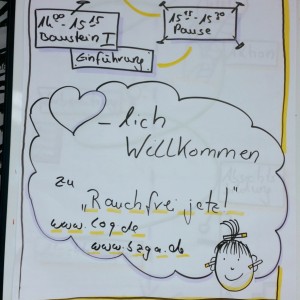 14⁰⁰ - 15¹⁵
Baustein I
Einführung
15¹⁵ - 15³⁰
Pause
- lich
Willkommen
zu
„Rauchfrei jetzt!"
www.coq.de
www.szga.de